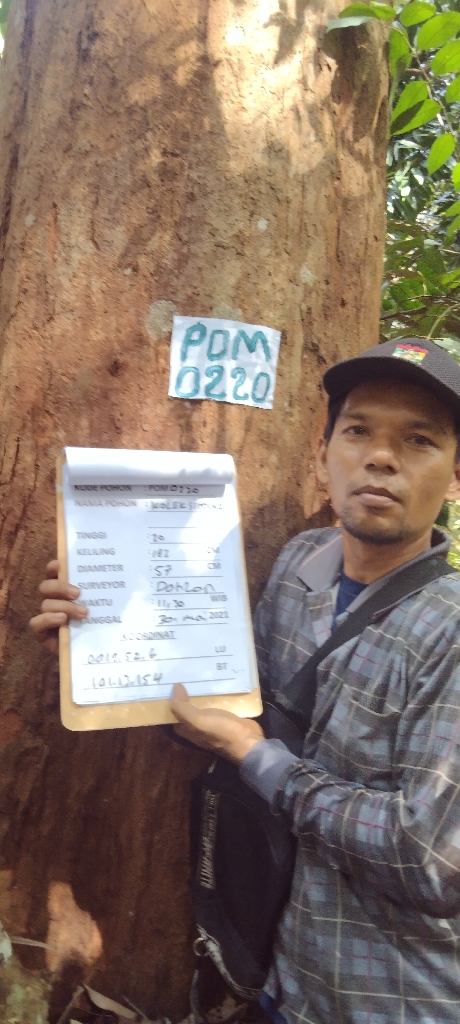 PDM
0220
KODE POHON : POM 0220
NAMA POHON : KOLEK
TINGGI : 20
KELILING : 182 CM
DIAMETER : 57 CM
SURVEYOR : Dahlan
WAKTU : 11.30 WIB
TANGGAL : 30 mar 2021
KOORDINAT
LU
101.12.154 BT